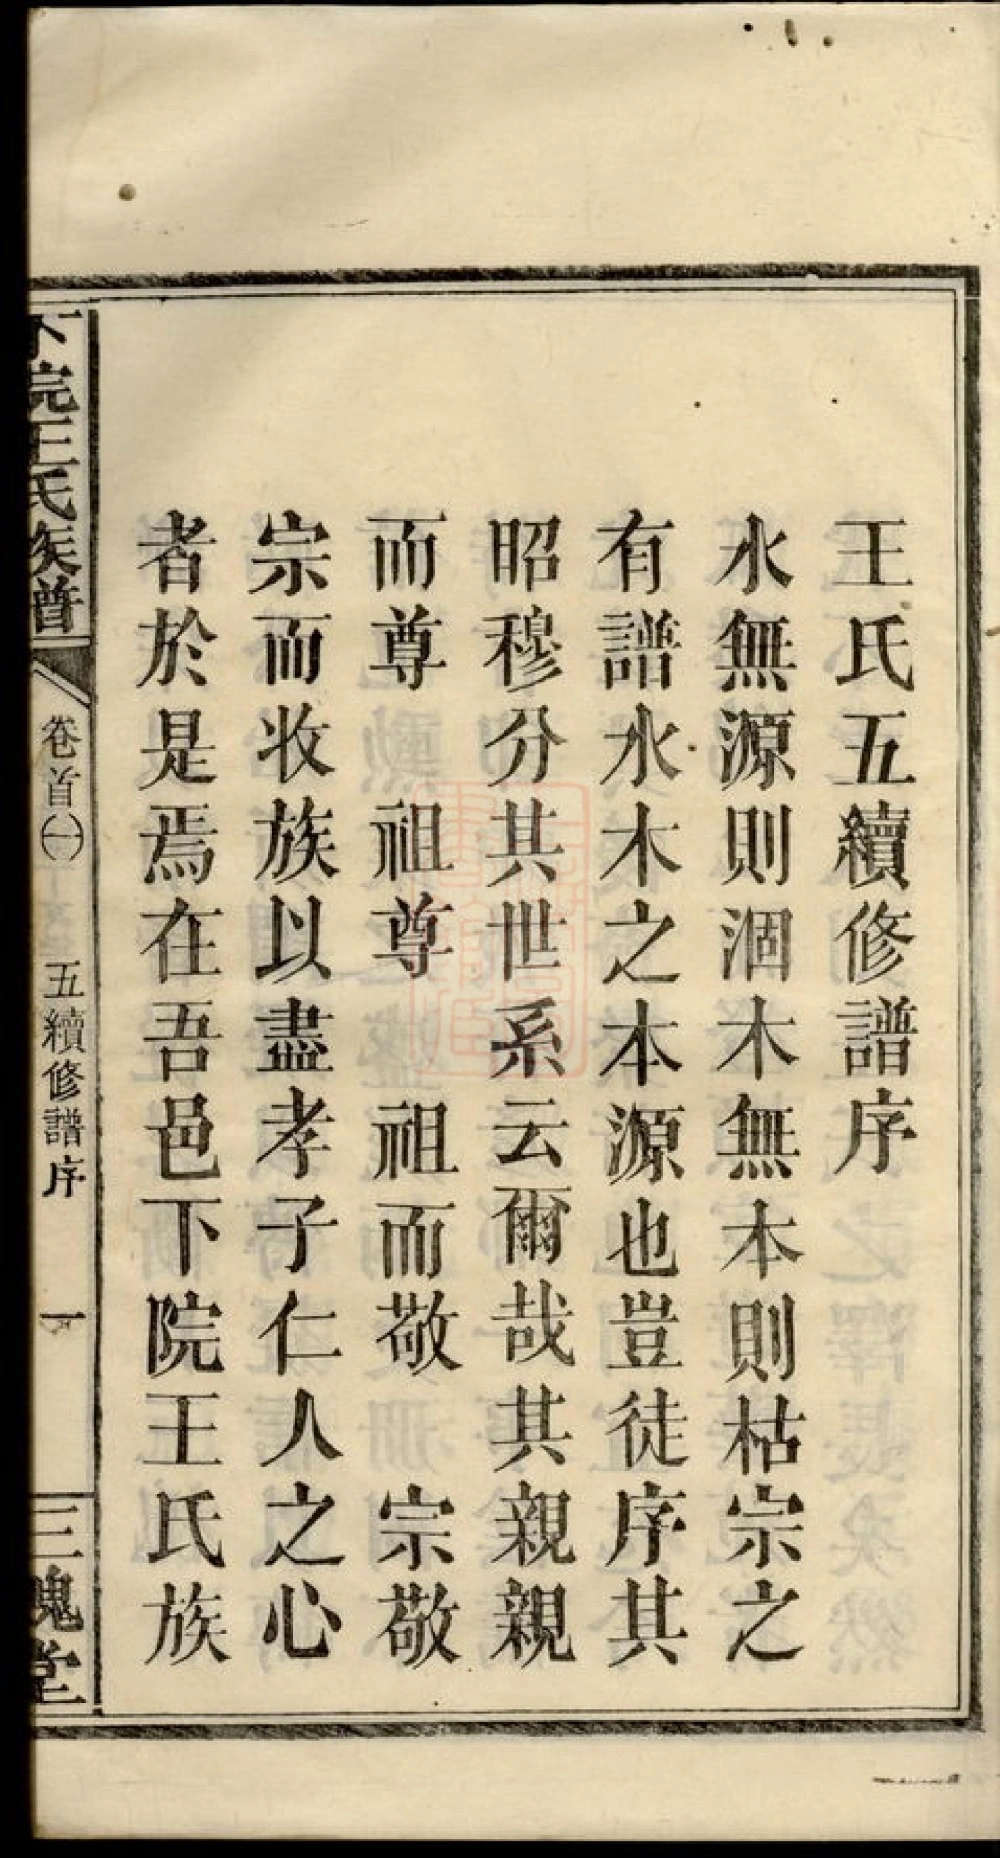 王氏五續修譜序
水無源則涸木無本則枯宗之
有譜水木之本源也豈徒序其
昭穆分共世系云爾哉其親親
而尊祖尊祖而敬宗敬
宗而收族以盡孝子仁人之心
者於是焉在吾邑下院王氏族
下院王氏族譜
卷首㈠
五續修譜序
一
三槐堂